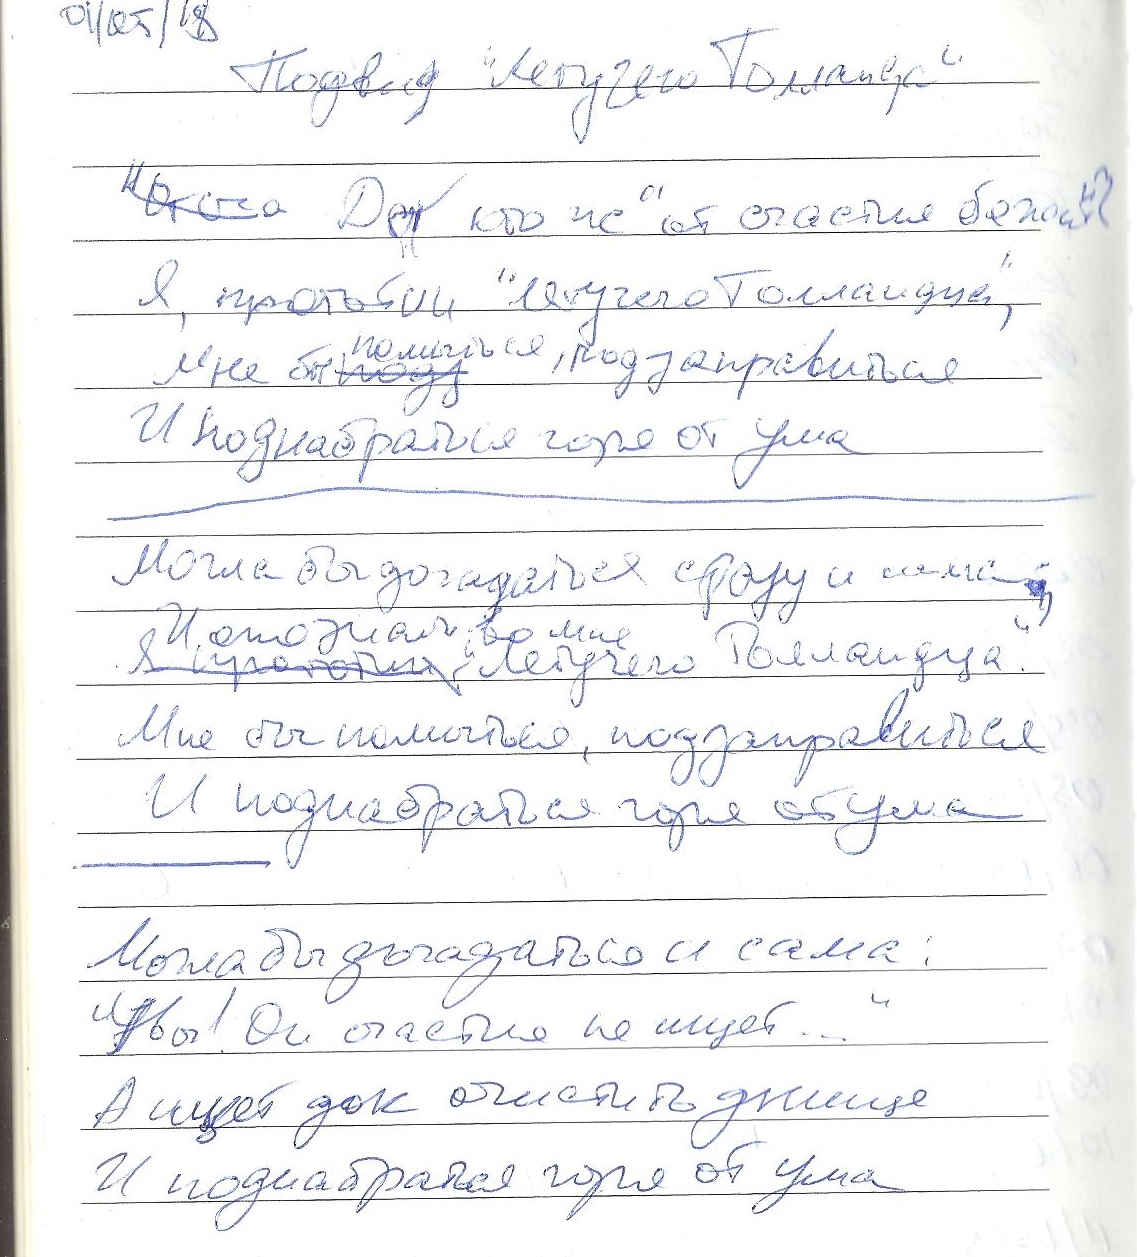 01/05/18
Подвид "Летучего Голланда"
Да кто же "от счастия бежит?
Я, прототип "Летучего Голландца",
Мне бы помыться, подзаправиться
И поднабраться горя от ума
Могла бы догадаться сразу и сама,
И опознать во мне
"Летучего Голландца".
Мне бы помыться, подзаправиться
И поднабраться горя от ума
Могла бы догадаться и сама:
"Увы! Он счастия не ищет..."
А ищет док очистить днище
И поднабраться горя от ума